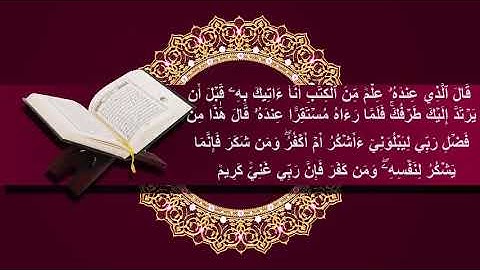 قَالَ ٱلَّذِي عِندَهُۥ عِلۡمٞ مِّنَ ٱلۡكِتَٰبِ أَنَا۠ ءَاتِيكَ بِهِۦ قَبۡلَ أَن
يَرۡتَدَّ إِلَيۡكَ طَرۡفُكَۚ فَلَمَّا رَءَاهُ مُسۡتَقِرًّا عِندَهُۥ قَالَ هَٰذَا مِن
فَضۡلِ رَبِّي لِيَبۡلُوَنِيٓ ءَأَشۡكُرُ أَمۡ أَكۡفُرُۖ وَمَن شَكَرَ فَإِنَّمَا
يَشۡكُرُ لِنَفۡسِهِۦۖ وَمَن كَفَرَ فَإِنَّ رَبِّي غَنِيّٞ كَرِيمٞ